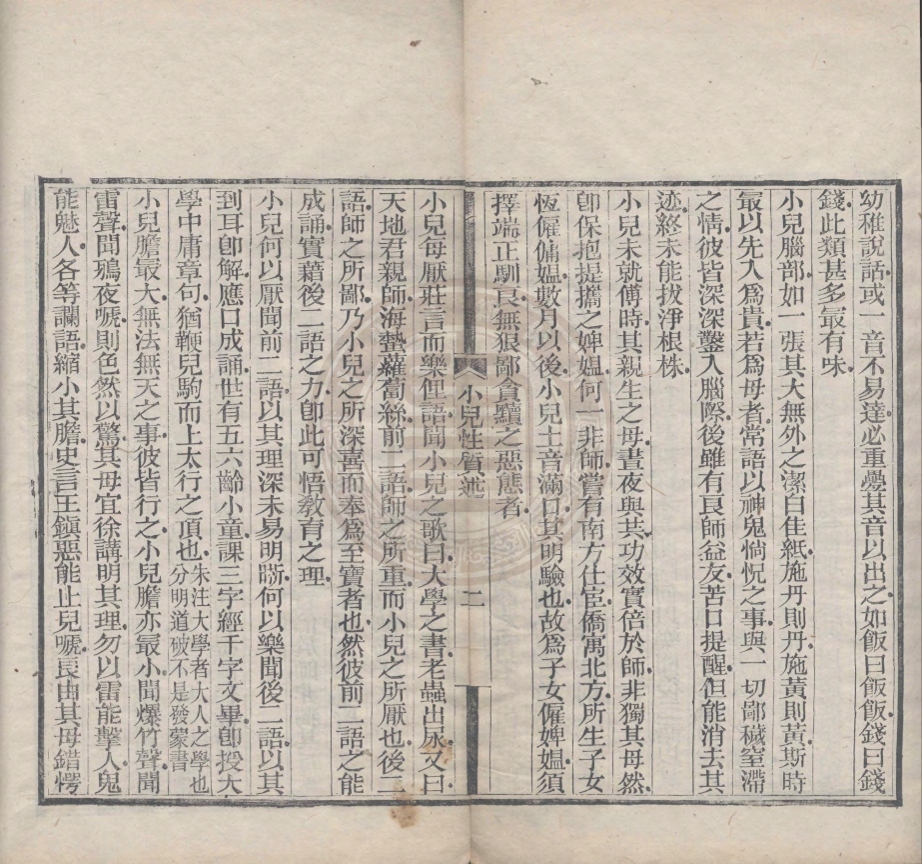 幼稚說話或一音不易達必重疊其音以出之如飯曰飯飯錢曰錢
錢此類甚多最有味
小兒腦部如一張其大無外之潔白佳紙施丹則丹施黃則黃斯時
最以先入爲貴若爲母者常語以神鬼惝怳之事與一切鄙穢窒滯
之情彼皆深深鑿入腦際後雖有良師益友苦口提醒但能消去其
迹終未能拔淨根株
小兒未就傅時其親生之母晝夜與共功效實倍於師非獨其母然
卽保抱提攜之婢媼何一非師嘗有南方仕宦僑寓北方所生子女
恆僱傭媼數月以後小兒土音滿口其明驗也故爲子女僱婢媼須
擇端正馴良無狠鄙貪黷之惡態者
小兒性質述
二
小兒每厭莊言而樂俚語聞小兒之歌曰大學之書老蟲出尿又曰
天地君親師海蜇蘿蔔絲前二語師之所重而小兒之所厭也後二
語師之所鄙乃小兒之所深喜而奉爲至寶者也然彼前二語之能
成誦實藉後二語之力卽此可悟教育之理
小兒何以厭聞前二語以其理深未易明晣何以樂聞後二語以其
到耳卽解應口成誦世有五六齡小童課三字經千字文畢卽授大
學中庸章句猶鞭兒駒而上太行之頂也朱注大學者大人之學也分明道破不是發蒙書
小兒膽最大無法無天之事彼皆行之小兒膽亦最小聞爆竹聲聞
雷聲聞鴉夜嗁則色然以驚其母宜徐講明其理勿以雷能擊人鬼
能魅人各等讕語縮小其膽史言王鎭惡能止兒嗁良由其母錯愕